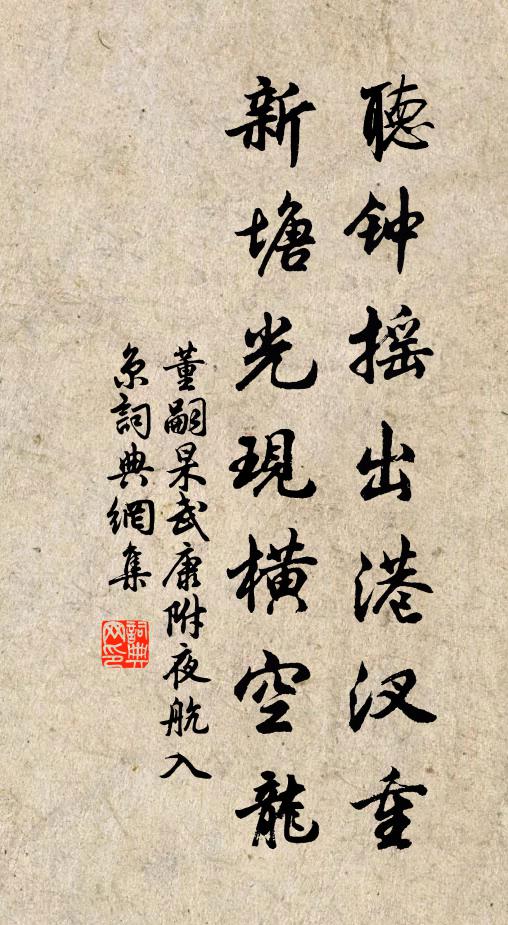 聽钟摇出港汊重
新塘光現橫空龍
董嗣杲武康附夜航入
京詞典網集
詞典网印